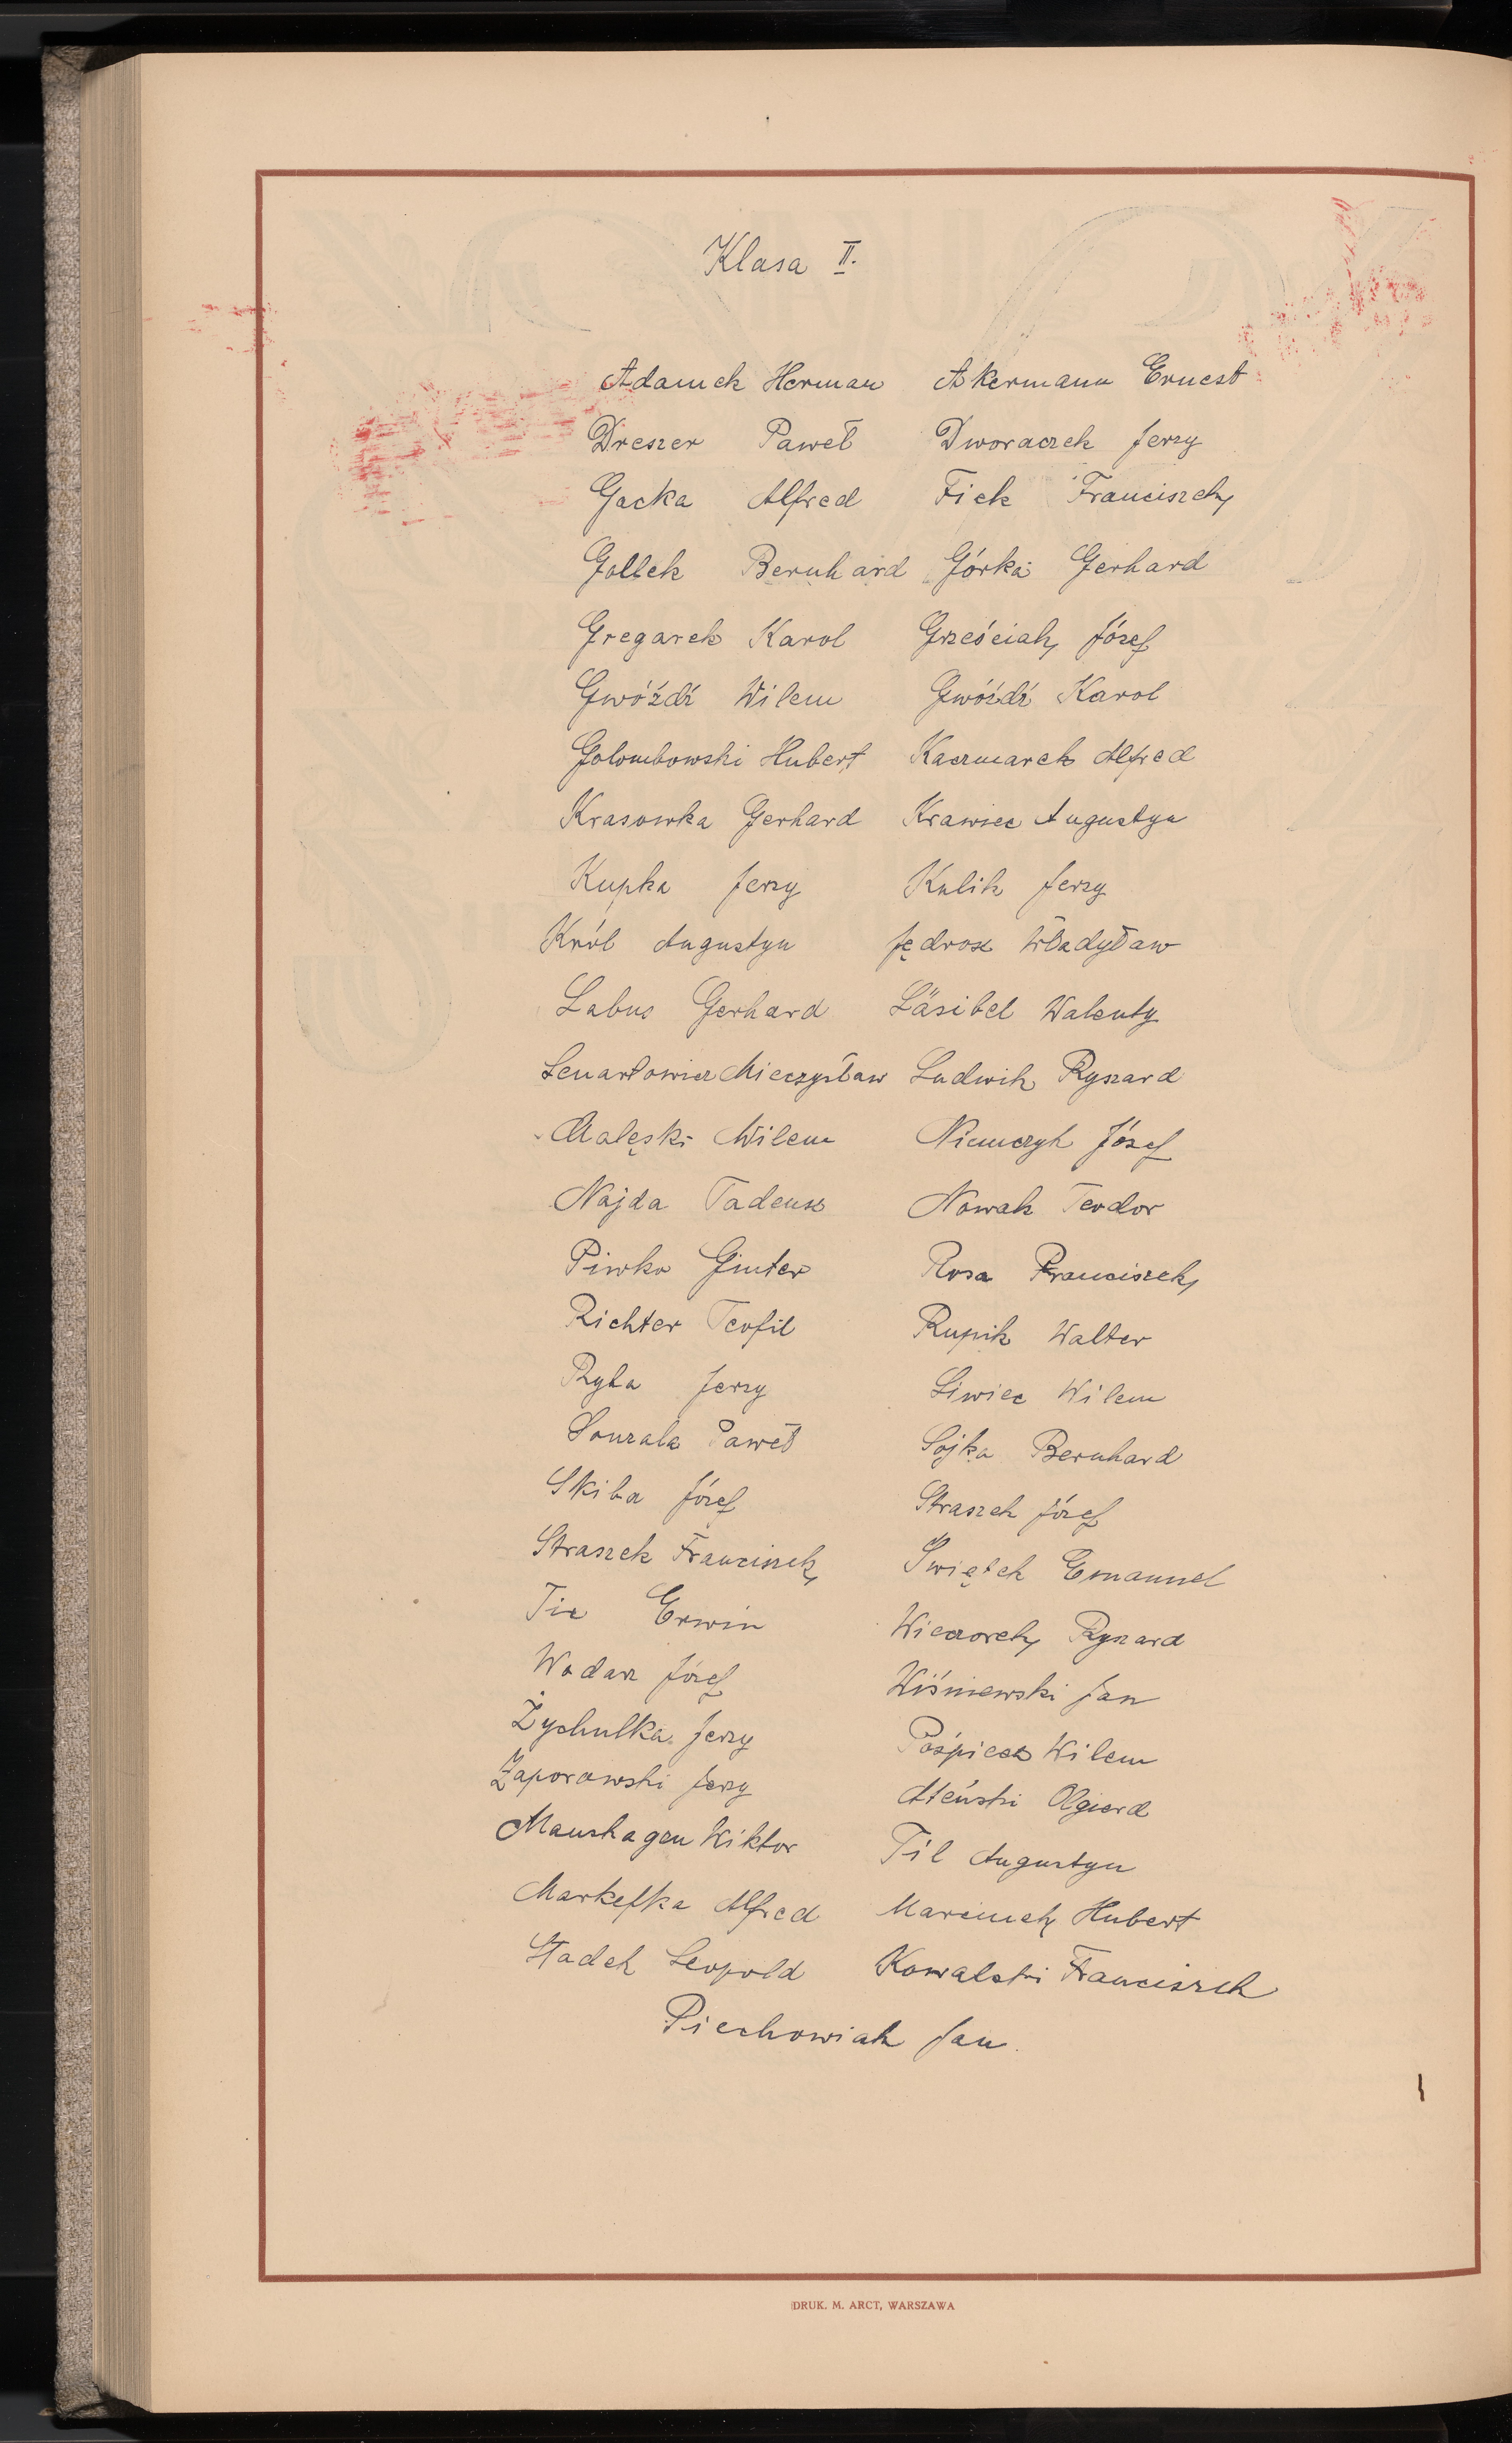 Klasa II.
Adamek Herman Akermann Ernest
Dreszer Paweł Dworaczek Jerzy
Gacka Alfred Fick Franciszek
Gollek Bernhard Górka Gerhard
Gregarek Karol Grześciak Józef
Gwóźdź Wilem Gwóźdź Karol
Golombowski Hubert Kaczmarek Alfred
Krasowka Gerhard Krawiec Augustyn
Kupka Jerzy Kulik Jerzy
Król Augustyn Jędrosz Władyław
Labus Gerhard Läsibel Walenty
Lenartowicz Mieczysław Ludwik Ryszard
Malęski Wilem Niemczyk Józef
Najda Tadeusz Nowak Teodor
Piwko Ginter Rosa Franciszek
Richter Teofil Rupik Walter
Ryba Jerzy Siwiec Wilem
Sourala Paweł Sojka Bernhard
Skiba Józef Straszek Józef
Straszek Franciszek Świętek Emanuel
Tic Erwin Wieczorek Ryszard
Wodarz Józef Wiśniewski Jan
Żychulka Jerzy Pośpiech Wilem
Zaporowski Jerzy Ateński Olgierd
Maushagen Wiktor Til Augustyn
Markefka Alfred Marcinek Hubert
Stadek Leopold Kowalski Franciszek
Piechowiak Jan.
DRUK. M. ARCT, WARSZAWA